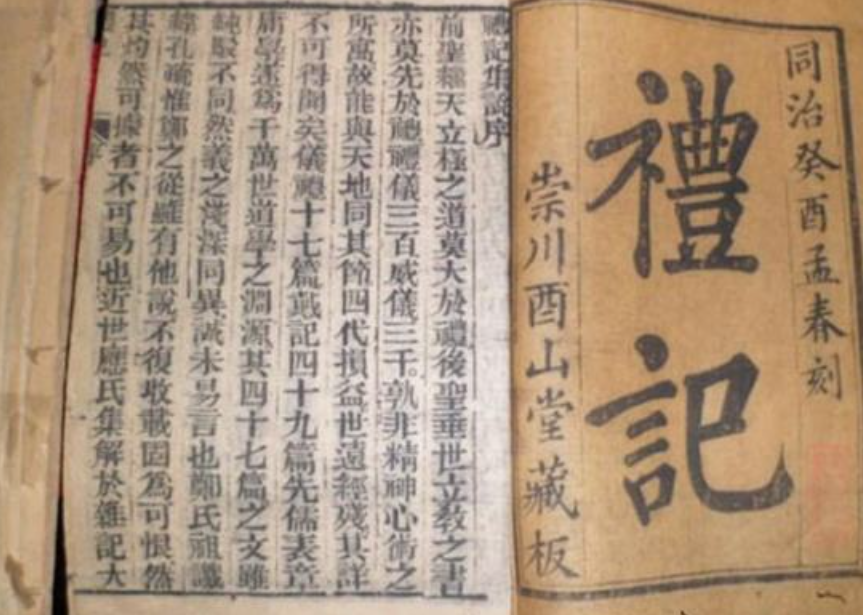 同治癸酉孟春刻
禮記
崇川酉山堂藏板
禮記集說序
前聖繼天立極之道莫大於禮後聖垂世立教之書
亦莫先於禮禮儀三百威儀三千。孰非精神心術之
所寓故能與天地同其節四代損益世遠經殘其詳
不可得聞矣儀禮十七篇戴記四十九篇先儒表章
庸學遂爲千萬世道學之淵源其四十七篇之文雖
純駁不同然義之淺深同異誠未易言也鄭氏祖讖
緯孔疏惟鄭之從雖有他說不復收載固爲可恨然
其灼然可據者不可易也近世應氏集解於雜記大